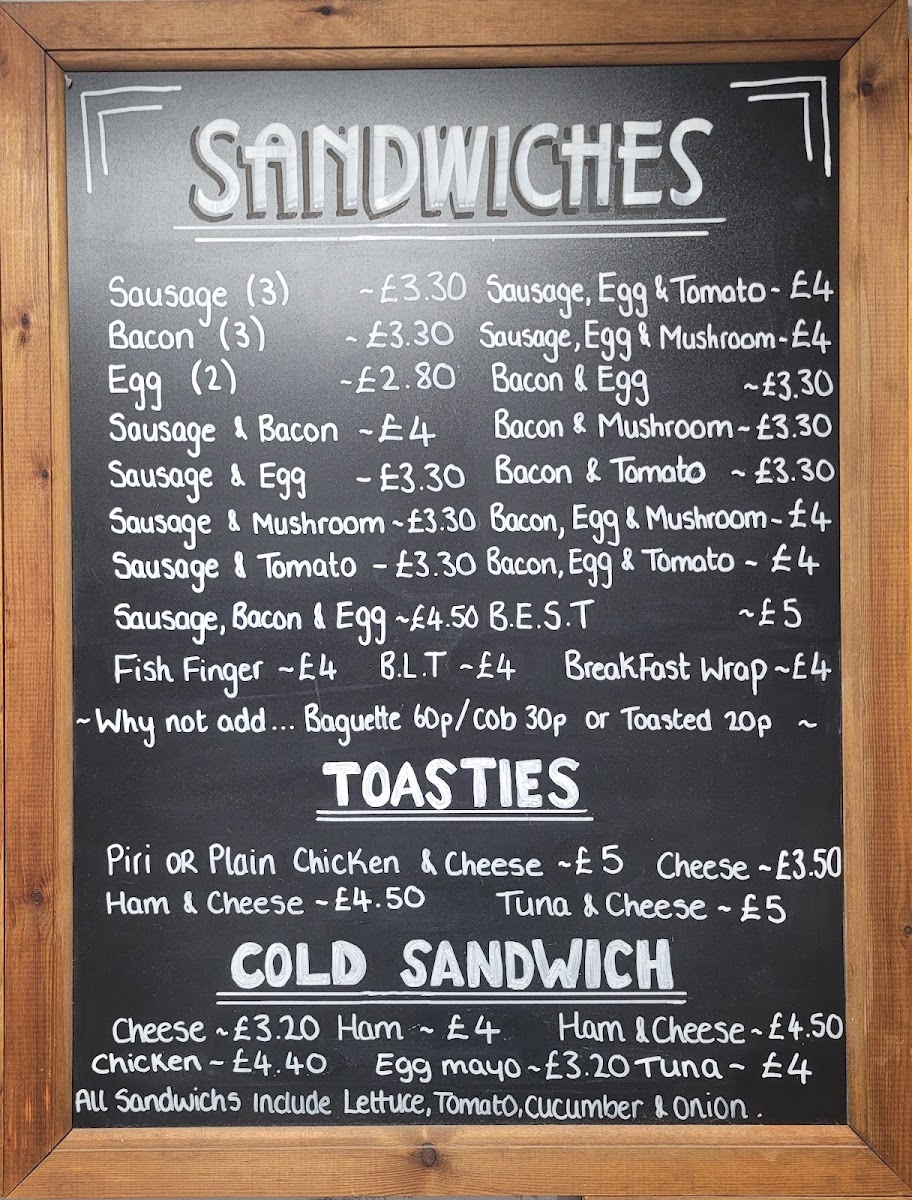 SANDWICHES
Sausage (3) ~£3.30 Sausage, Egg & Tomato - £4
Bacon (3) ~£3.30 Sausage, Egg & Mushroom - £4
Egg (2) ~£2.80 Bacon & Egg ~£3.30
Sausage & Bacon ~£4 Bacon & Mushroom ~£3.30
Sausage & Egg ~£3.30 Bacon & Tomato ~£3.30
Sausage & Mushroom ~£3.30 Bacon, Egg & Mushroom - £4
Sausage & Tomato - £3.30 Bacon, Egg & Tomato ~ £4
Sausage, Bacon & Egg ~£4.50 B.E.S.T ~£5
Fish Finger ~£4 B.L.T ~£4 Breakfast Wrap ~£4
~Why not add... Baguette 60p/cob 30p or Toasted 20p ~
TOASTIES
Piri OR Plain Chicken & Cheese ~£5 Cheese ~£3.50
Ham & Cheese ~£4.50 Tuna & Cheese ~£5
COLD SANDWICH
Cheese ~£3.20 Ham ~ £4 Ham & Cheese ~£4.50
Chicken ~ £4.40 Egg mayo ~£3.20 Tuna ~ £4
All Sandwichs Include Lettuce, Tomato, Cucumber & Onion.